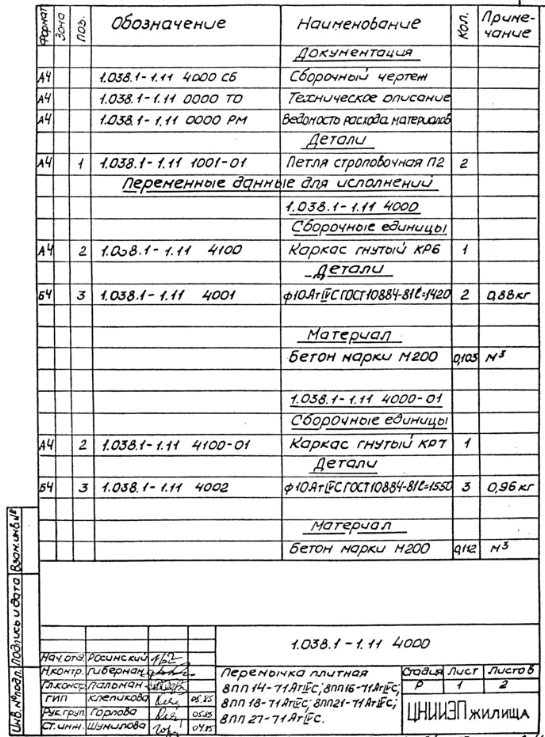 Формат Зона Поз. Обозначение Наименование Кол. Приме-
чание
Документация
А4 1.038.1-1.11 4000 СБ Сборочный чертеж
А4 1.038.1-1.11 0000 ТО Техническое описание
А4 1.038.1-1.11 0000 РМ Ведомость расхода материалов
Детали
А4 1 1.038.1-1.11 1001-01 Петля строповочная П2 2
Переменные данные для исполнений
1.038.1-1.11 4000
Сборочные единицы
А4 2 1.038.1-1.11 4100 Каркас гнутый КР6 1
Детали
Б4 3 1.038.1-1.11 4001 ф10АтIVС ГОСТ10884-81 ℓ=1420 2 0,88кг
Материал
Бетон марки М200 0,103 м³
1.038.1-1.11 4000-01
Сборочные единицы
А4 2 1.038.1-1.11 4100-01 Каркас гнутый КР7 1
Детали
Б4 3 1.038.1-1.11 4002 ф10АтIVС ГОСТ10884-81 ℓ=1550 3 0,96кг
Материал
Бетон марки М200 0,112 м³
Взам.инв.№
Подпись и дата
Инв.№подл.
1.038.1-1.11 4000
Нач.отд. Росинский
Н.контр. Гиберман
Гл.констр. Пальман
ГИП Клепикова 05.85
Рук.груп. Горлова 05.85
Ст.инж. Шумилова 04.85
Перемычка плитная
8ПП14-71АтIVС; 8ПП16-71АтIVС;
8ПП18-71АтIVС; 8ПП21-71АтIVС;
8ПП27-71АтIVС.
Стадия Лист Листов
Р 1 2
ЦНИИЭП жилища